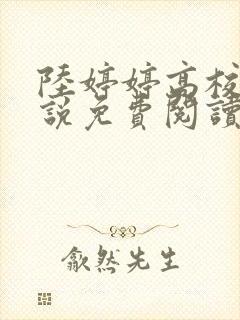 陸婷婷高校
說免費閱讀
歙然先生